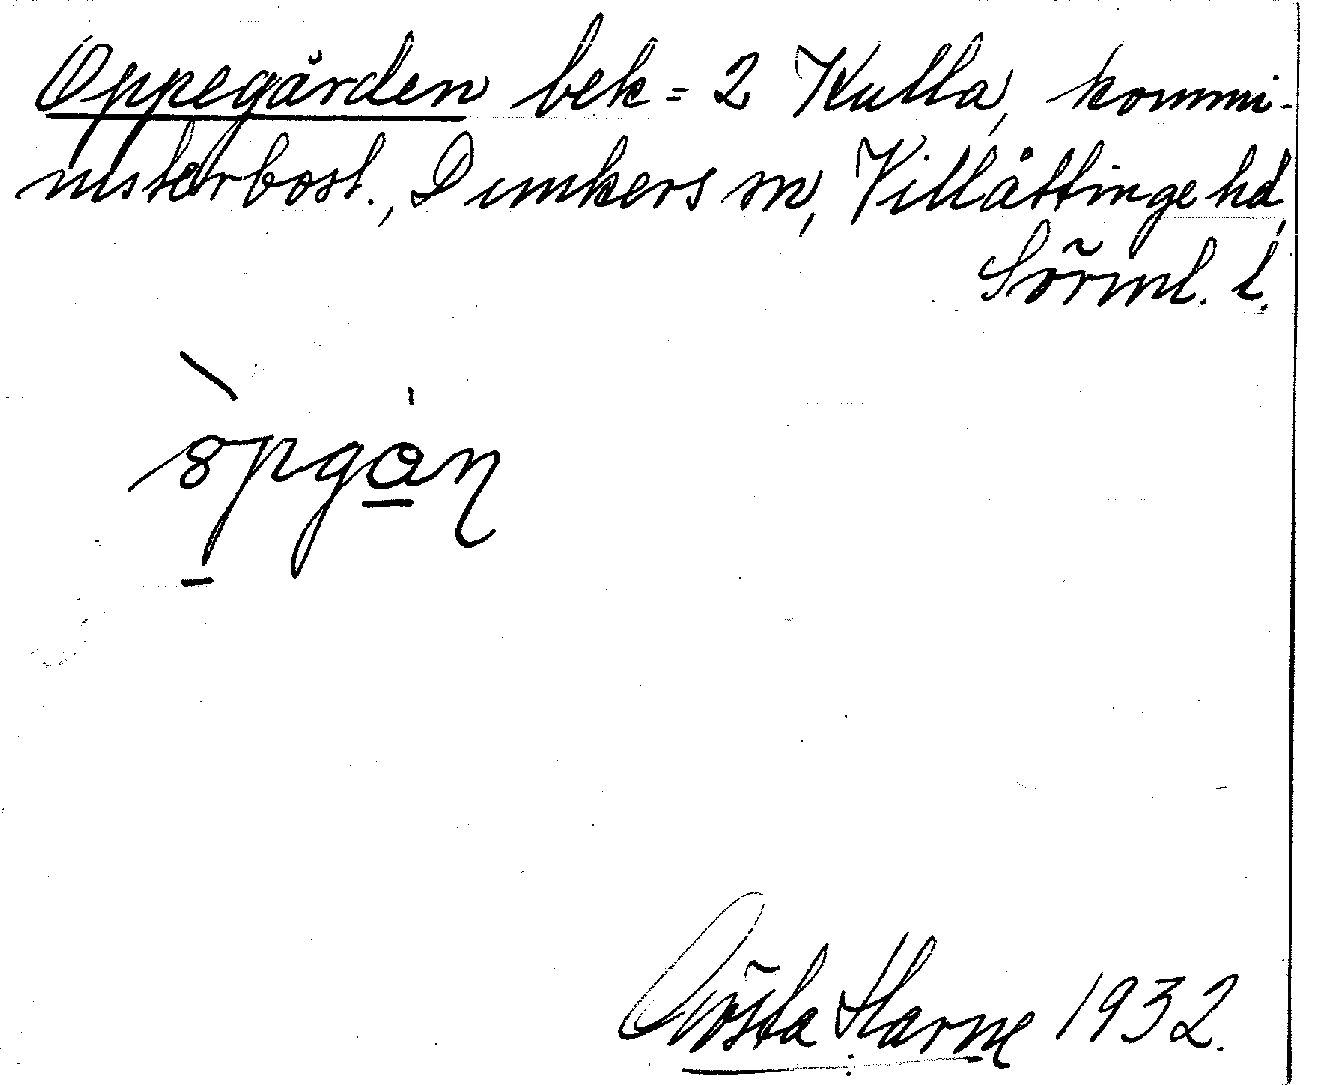 Oppegården bek = 2 Kulla, kommi-
nisterbost., Dunkers sn, Villåttinge hd,
Sörml. l.
Gösta Harne 1932.